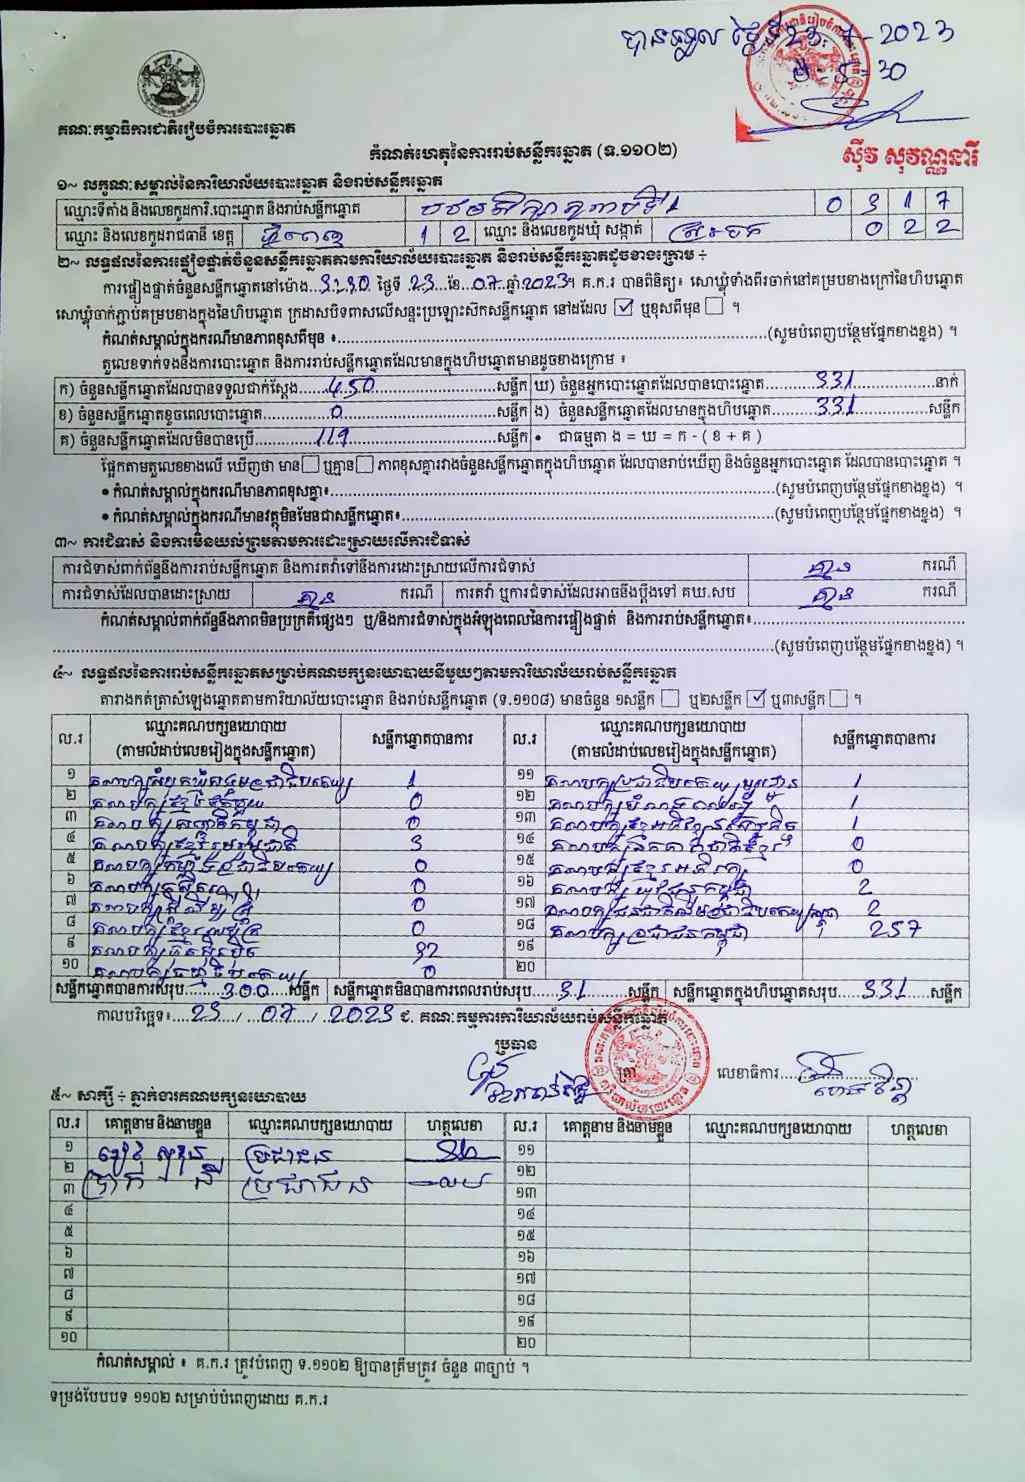 បានទទួល ថ្ងៃទី23-7-2023
គណៈកម្មាធិការជាតិរៀបចំការបោះឆ្នោត
កំណត់ហេតុនៃការរាប់សន្លឹកឆ្នោត (ទ.១១០២)
ស៊ីវ សុវណ្ណនារី
១~ លក្ខណៈសម្គាល់នៃការិយាល័យបោះឆ្នោត និងរាប់សន្លឹកឆ្នោត
ឈ្មោះទីតាំង និងលេខកូដការិ.បោះឆ្នោត និងរាប់សន្លឹកឆ្នោត 0 3 1 7
ឈ្មោះ និងលេខកូដរាជធានី ខេត្ត ភ្នំពេញ 1 2 ឈ្មោះ និងលេខកូដឃុំ សង្កាត់ 0 2 2
២~ លទ្ធផលនៃការផ្ទៀងផ្ទាត់ចំនួនសន្លឹកឆ្នោតតាមការិយាល័យបោះឆ្នោត និងរាប់សន្លឹកឆ្នោតដូចខាងក្រោម ÷
ការផ្ទៀងផ្ទាត់ចំនួនសន្លឹកឆ្នោតនៅម៉ោង..3:30 ថ្ងៃទី 23...ខែ..07..ឆ្នាំ2023។ គ.ក.រ បានពិនិត្យ៖ សោឃ្លុំទាំងពីរចាក់នៅគម្របខាងក្រៅនៃហិបឆ្នោត
សោឃ្លុំចាក់ភ្ជាប់គម្របខាងក្នុងនៃហិបឆ្នោត ក្រដាសបិទពាសលើសន្ទះប្រឡោះស៊កសន្លឹកឆ្នោត នៅដដែល ☑ ឬខុសពីមុន ☐ ។
កំណត់សម្គាល់ក្នុងករណីមានភាពខុសពីមុន ៖..........(សូមបំពេញបន្ថែមផ្នែកខាងខ្នង) ។
តួលេខទាក់ទងនឹងការបោះឆ្នោត និងការរាប់សន្លឹកឆ្នោតដែលមានក្នុងហិបឆ្នោតមានដូចខាងក្រោម ៖
ក) ចំនួនសន្លឹកឆ្នោតដែលបានទទួលជាក់ស្តែង.....450.....សន្លឹក ឃ) ចំនួនអ្នកបោះឆ្នោតដែលបានបោះឆ្នោត.....331.....នាក់
ខ) ចំនួនសន្លឹកឆ្នោតខូចពេលបោះឆ្នោត.....0.....សន្លឹក ង) ចំនួនសន្លឹកឆ្នោតដែលមានក្នុងហិបឆ្នោត.....331.....សន្លឹក
គ) ចំនួនសន្លឹកឆ្នោតដែលមិនបានប្រើ.....119.....សន្លឹក • ជាធម្មតា ង = ឃ = ក - ( ខ + គ )
ផ្អែកតាមតួលេខខាងលើ ឃើញថា មាន ☐ ឬគ្មាន ☐ ភាពខុសគ្នារវាងចំនួនសន្លឹកឆ្នោតក្នុងហិបឆ្នោត ដែលបានរាប់ឃើញ និងចំនួនអ្នកបោះឆ្នោត ដែលបានបោះឆ្នោត ។
• កំណត់សម្គាល់ក្នុងករណីមានភាពខុសគ្នា៖..........(សូមបំពេញបន្ថែមផ្នែកខាងខ្នង) ។
• កំណត់សម្គាល់ក្នុងករណីមានវត្ថុមិនមែនជាសន្លឹកឆ្នោត៖..........(សូមបំពេញបន្ថែមផ្នែកខាងខ្នង) ។
៣~ ការជំទាស់ និងការមិនយល់ព្រមតាមការដោះស្រាយលើការជំទាស់
ការជំទាស់ពាក់ព័ន្ធនឹងការរាប់សន្លឹកឆ្នោត និងការតវ៉ាទៅនឹងការដោះស្រាយលើការជំទាស់ គ្មាន ករណី
ការជំទាស់ដែលបានដោះស្រាយ គ្មាន ករណី ការតវ៉ា ឬការជំទាស់ដែលអាចនឹងប្តឹងទៅ គឃ.សប គ្មាន ករណី
កំណត់សម្គាល់ពាក់ព័ន្ធនឹងភាពមិនប្រក្រតីផ្សេងៗ ឬ/និងការជំទាស់ក្នុងអំឡុងពេលនៃការផ្ទៀងផ្ទាត់ និងការរាប់សន្លឹកឆ្នោត៖..........
..........(សូមបំពេញបន្ថែមផ្នែកខាងខ្នង) ។
៤~ លទ្ធផលនៃការរាប់សន្លឹកឆ្នោតសម្រាប់គណបក្សនយោបាយនីមួយៗតាមការិយាល័យរាប់សន្លឹកឆ្នោត
តារាងកត់ត្រាសំឡេងឆ្នោតតាមការិយាល័យបោះឆ្នោត និងរាប់សន្លឹកឆ្នោត (ទ.១១០៨) មានចំនួន ១សន្លឹក ☐ ឬ២សន្លឹក ☑ ឬ៣សន្លឹក ☐ ។
ល.រ ឈ្មោះគណបក្សនយោបាយ (តាមលំដាប់លេខរៀងក្នុងសន្លឹកឆ្នោត) សន្លឹកឆ្នោតបានការ ល.រ ឈ្មោះគណបក្សនយោបាយ (តាមលំដាប់លេខរៀងក្នុងសន្លឹកឆ្នោត) សន្លឹកឆ្នោតបានការ
១ គណបក្សសំបុកឃ្មុំសង្គមប្រជាធិបតេយ្យ 1 ១១ គណបក្សប្រជាធិបតេយ្យមូលដ្ឋាន 1
២ គណបក្សខ្មែរតែមួយ 0 ១២ គណបក្ស 1
៣ គណបក្សកសាងជាតិកម្ពុជា 0 ១៣ គណបក្សខ្មែរអភិវឌ្ឍន៍សេដ្ឋកិច្ច 1
៤ គណបក្សខ្មែររួបរួមជាតិ 3 ១៤ គណបក្សឯកភាពជាតិខ្មែរ 0
៥ គណបក្សកម្លាំងប្រជាធិបតេយ្យ 0 ១៥ គណបក្សខ្មែរអភិរក្ស 0
៦ គណបក្ស 0 ១៦ គណបក្សយុវជនកម្ពុជា 2
៧ គណបក្ស 0 ១៧ គណបក្សជនជាតិដើមប្រជាធិបតេយ្យកម្ពុជា 2
៨ គណបក្សខ្មែរ 0 ១៨ គណបក្សប្រជាជនកម្ពុជា 257
៩ គណបក្សហ្វ៊ុនស៊ិនប៉ិច 32 ១៩
១០ គណបក្សធម្មាធិបតេយ្យ 0 ២០
សន្លឹកឆ្នោតបានការសរុប.....300.....សន្លឹក សន្លឹកឆ្នោតមិនបានការពេលរាប់សរុប.....31.....សន្លឹក សន្លឹកឆ្នោតក្នុងហិបឆ្នោតសរុប.....331.....សន្លឹក
កាលបរិច្ឆេទ៖....23..../....07..../..2023 ជ. គណៈកម្មការការិយាល័យរាប់សន្លឹកឆ្នោត
ប្រធាន
ត្រា លេខាធិការ..........
៥~ សាក្សី ÷ ភ្នាក់ងារគណបក្សនយោបាយ
ល.រ គោត្តនាម និងនាមខ្លួន ឈ្មោះគណបក្សនយោបាយ ហត្ថលេខា ល.រ គោត្តនាម និងនាមខ្លួន ឈ្មោះគណបក្សនយោបាយ ហត្ថលេខា
១ ប្រជាជន ១១
២ ប្រាក់ នី ប្រជាជន ១២
៣ ១៣
៤ ១៤
៥ ១៥
៦ ១៦
៧ ១៧
៨ ១៨
៩ ១៩
១០ ២០
កំណត់សម្គាល់ ៖ គ.ក.រ ត្រូវបំពេញ ទ.១១០២ ឱ្យបានត្រឹមត្រូវ ចំនួន ៣ច្បាប់ ។
ទម្រង់បែបបទ ១១០២ សម្រាប់បំពេញដោយ គ.ក.រ